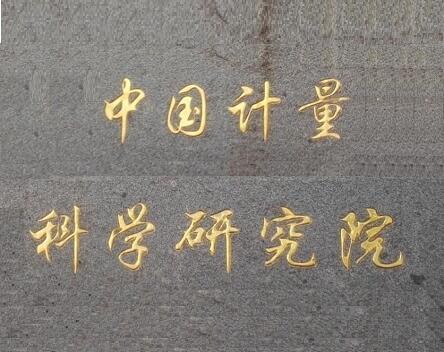 中国计量
科学研究院